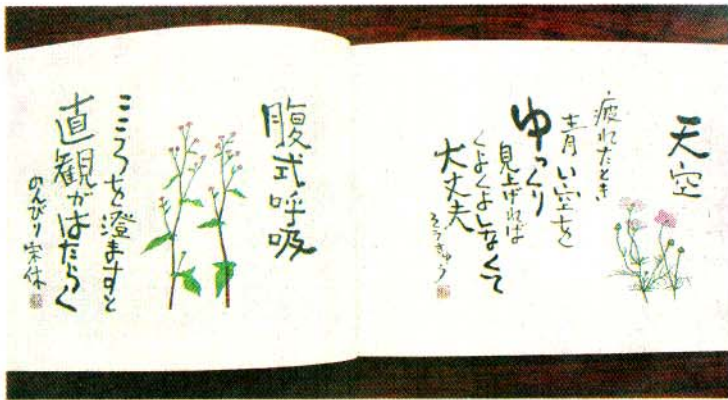 天空
疲れたとき
青い空を
ゆっくり
見上げれば
くよくよしなくて
大丈夫
そうきゅう
腹式呼吸
こころを澄ますと
直観がはたらく
のんびり宗休